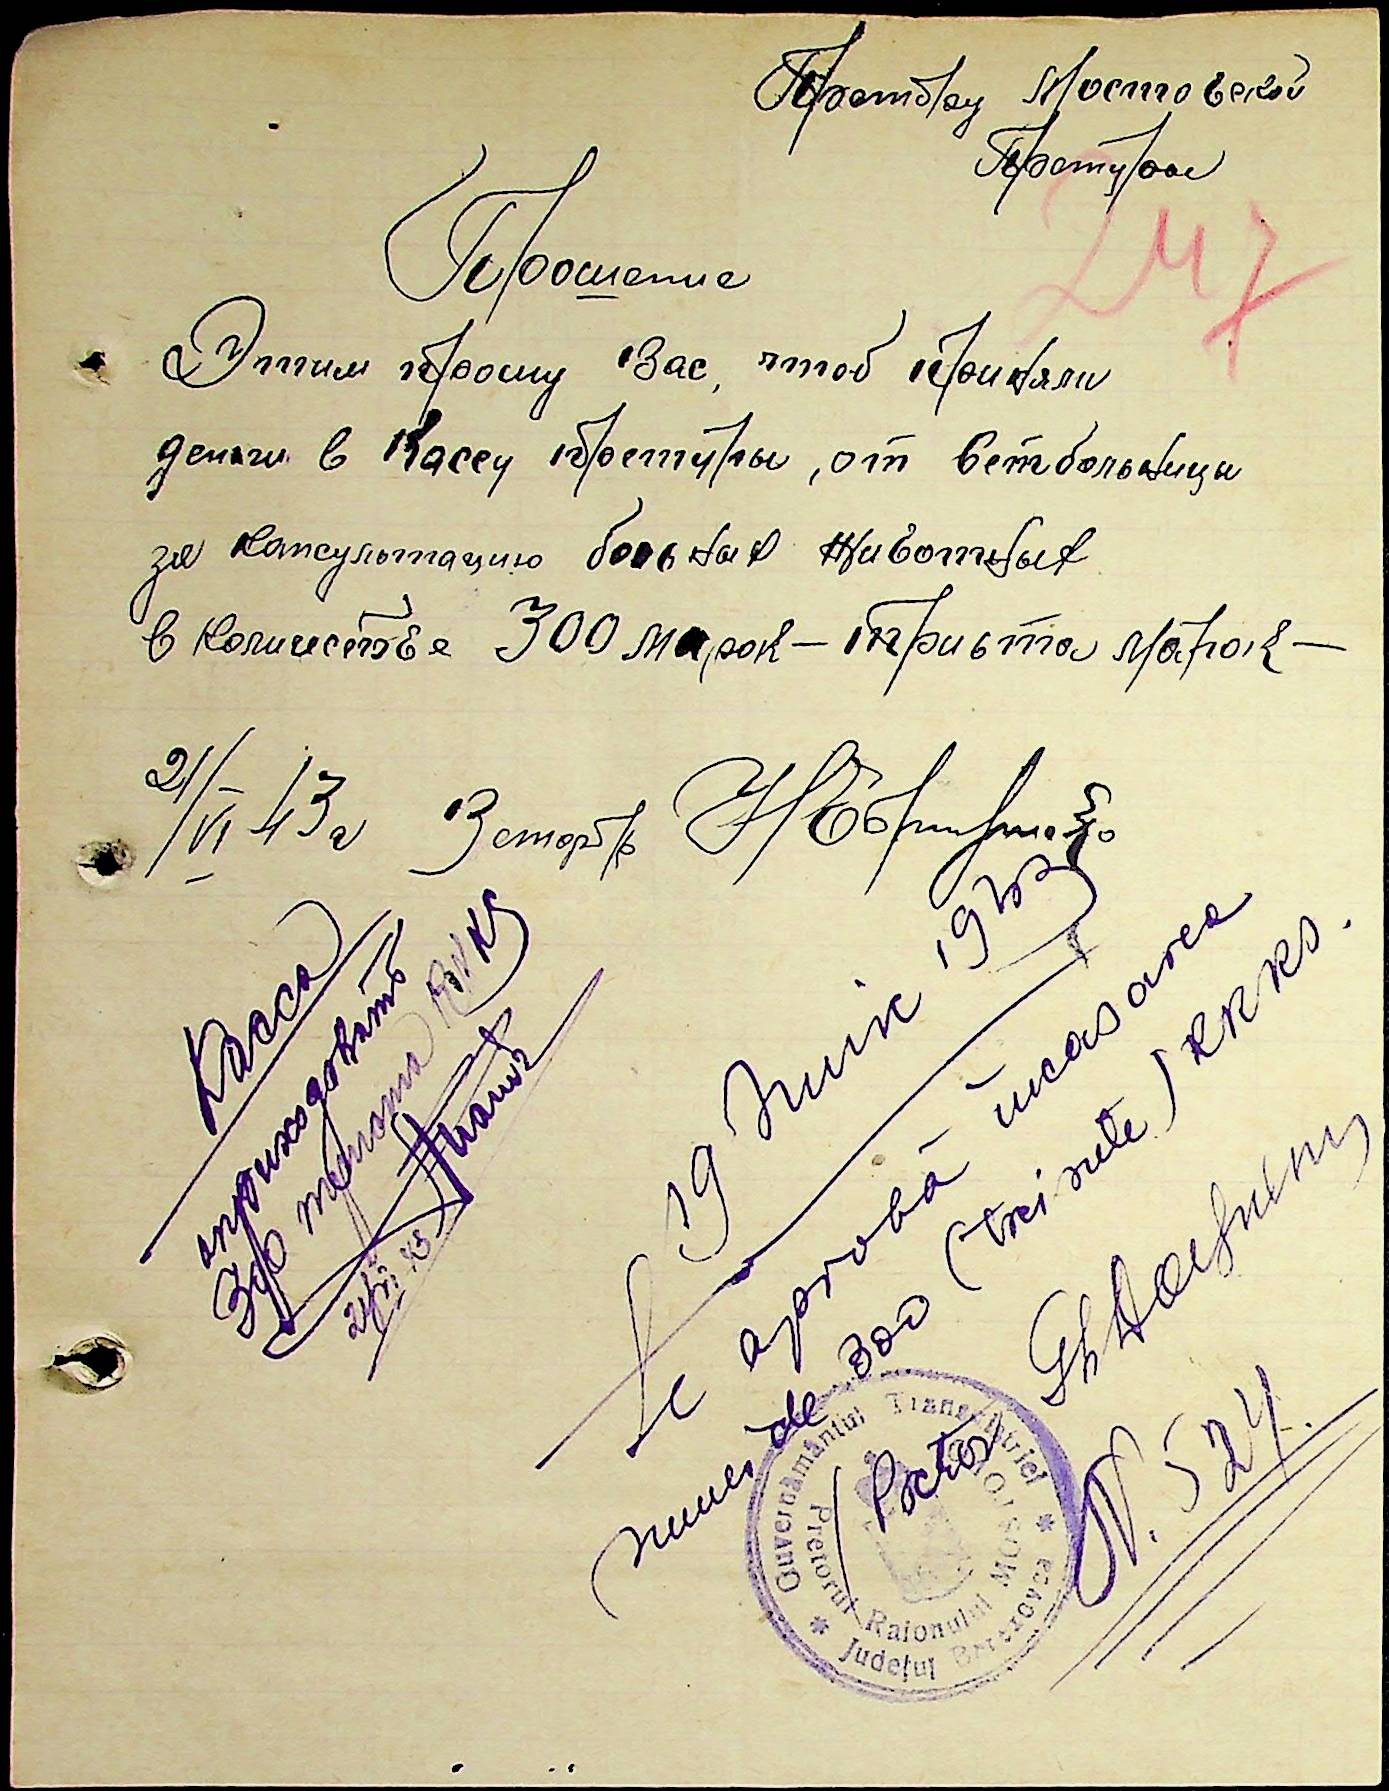 Претору Мостовской
Претуры
247
Прошение
Этим прошу Вас, чтоб приняли
деньги в Кассу претуры, от ветбольницы
за консультацию больных животных
в количестве 300 марок – триста марок –
21/VI 43 г
Касса
оприходовать
300 триста RKKS
21/VI 43
19 Iunie 1943
Se aprobă încasarea
sumei de 300 (trei sute) RKKS.
Pretor
N. 524.
Guvernământul Transnistriei * Județul Berezovca *
Pretorul Raionului MOSTOVOI